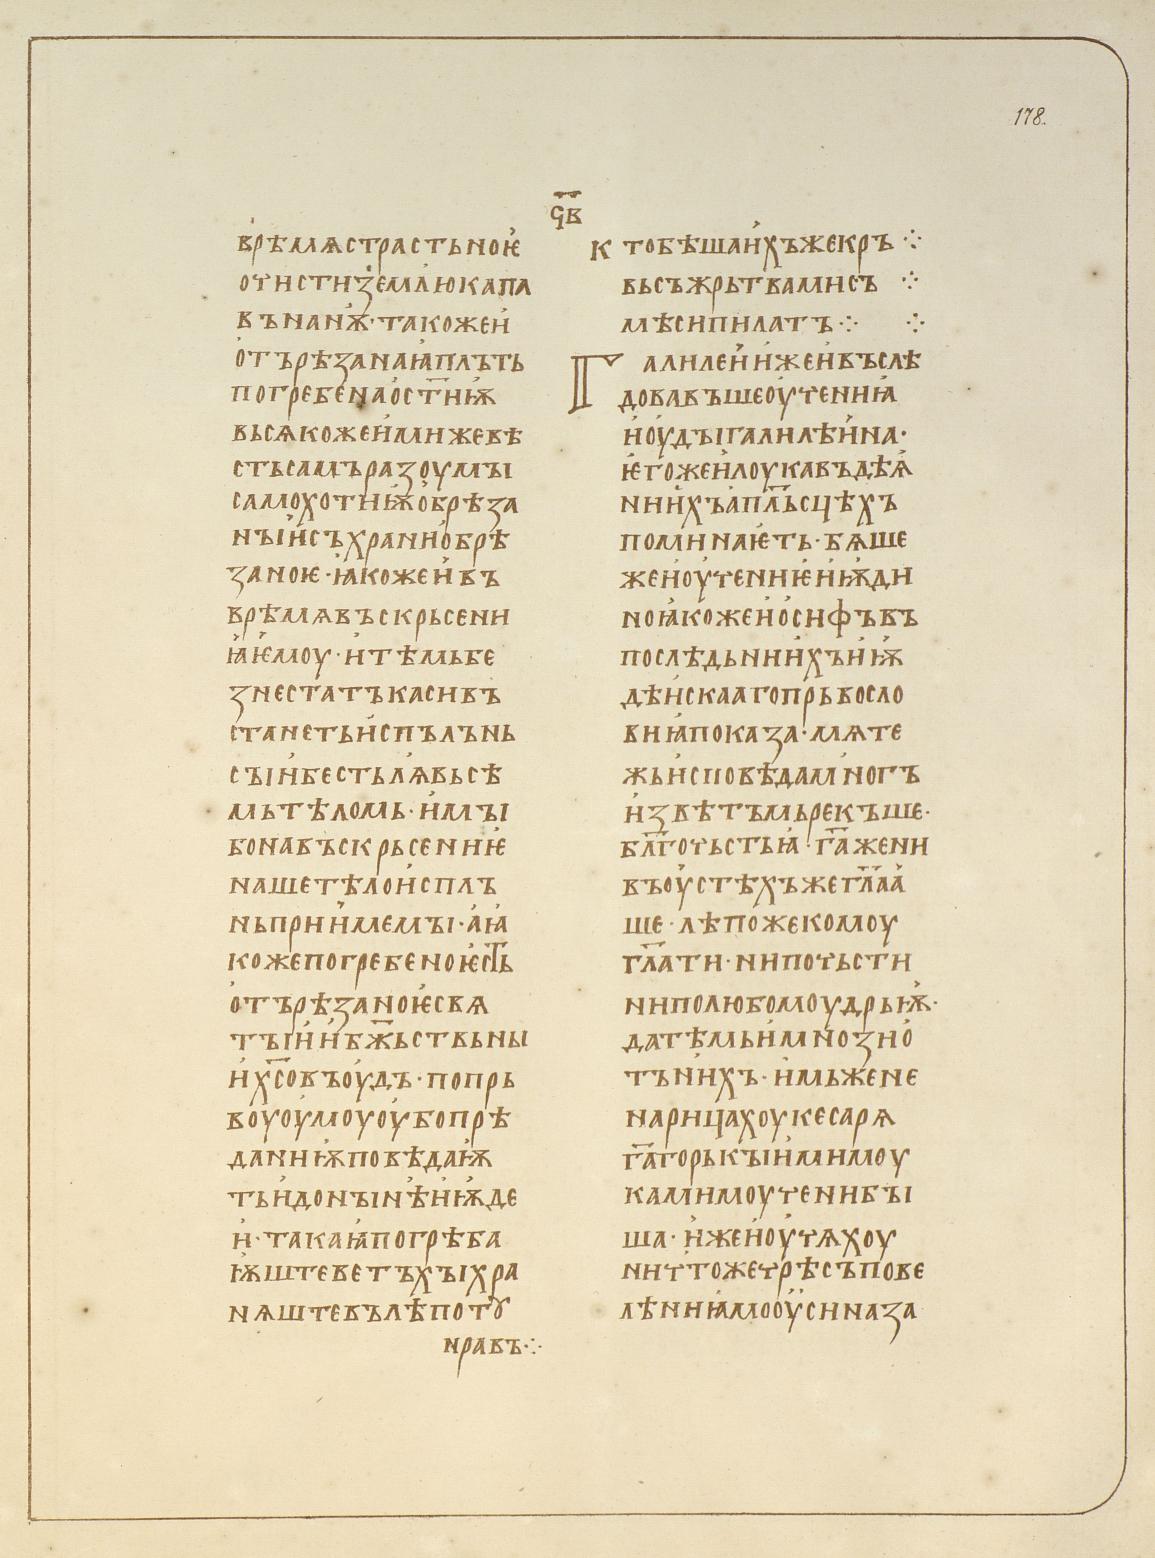 178.
врѣмѧстрастьноѥ
очистиꙁемлюкапл
вънанѭ·такожеи
отърѣꙁанаꙗплъть
погребенаост҃ниѭ
вьсѧкожеимижевѣ
стьсамъраꙁоумꙑ
самохотниѭобрѣꙁа
нꙑисъхраниобрѣ
ꙁаноѥ·ꙗкожеивъ
врѣмѧвъскрьсени
ꙗѥмоу·итѣмьбе
ꙁнестатъкасивъ
станетьиспълънь
сꙑибестьлѧвьсѣ
мьтѣломь·имꙑ
бонавъскрьсениѥ
нашетѣлоиспль
ньприимемꙑ·аꙗ
кожепогребеноѥст҃ь
отърѣꙁаноѥсвѧ
тꙑиибж҃ьствьны
их҃совъоудъ·попрь
воуоумоуоубопрѣ
данниѭповѣдаѭ
тьидонꙑнѣиѭде
и·такаꙗпогрѣба
ѭштеветъхꙑхра
нѧштевълѣпотꙋ
нравъ·:·
ѕ҃в
ктобѣшаихъжекръ ·:·
вьсъжрьтвамисъ ·:·
мѣсипилатъ·:· ·:·
Галилеиижеивъслѣ
довавъшеоучениꙗ
июдꙑгалилѣина·
ѥгожеилоукавъдѣꙗ
ниихъапл҃ьсцѣхъ
поминаѥть·бѧше
жеиоучениѥиѭди
ноꙗкожеиосифъвъ
послѣдьниихъиѭ
дѣискаагопрьвосло
виꙗпокаꙁа·мѧте
жьисповѣдамногъ
иꙁвѣтъмьрекъше·
бл҃гочьстьꙗ·г҃ажени
въоустѣхъжегл҃аа
ше·лѣпожекомоу
гл҃ати·нипочьсти
ниполюбомоудрьѭ·
датѣмьимноꙁио
тънихъ·имьжене
нарицахоукесарѧ
г҃агорькꙑимимоу
камимоученибꙑ
ша·ижеиоучѧхоу
ничтожечрѣсъпове
лѣниꙗмооусинаꙁа